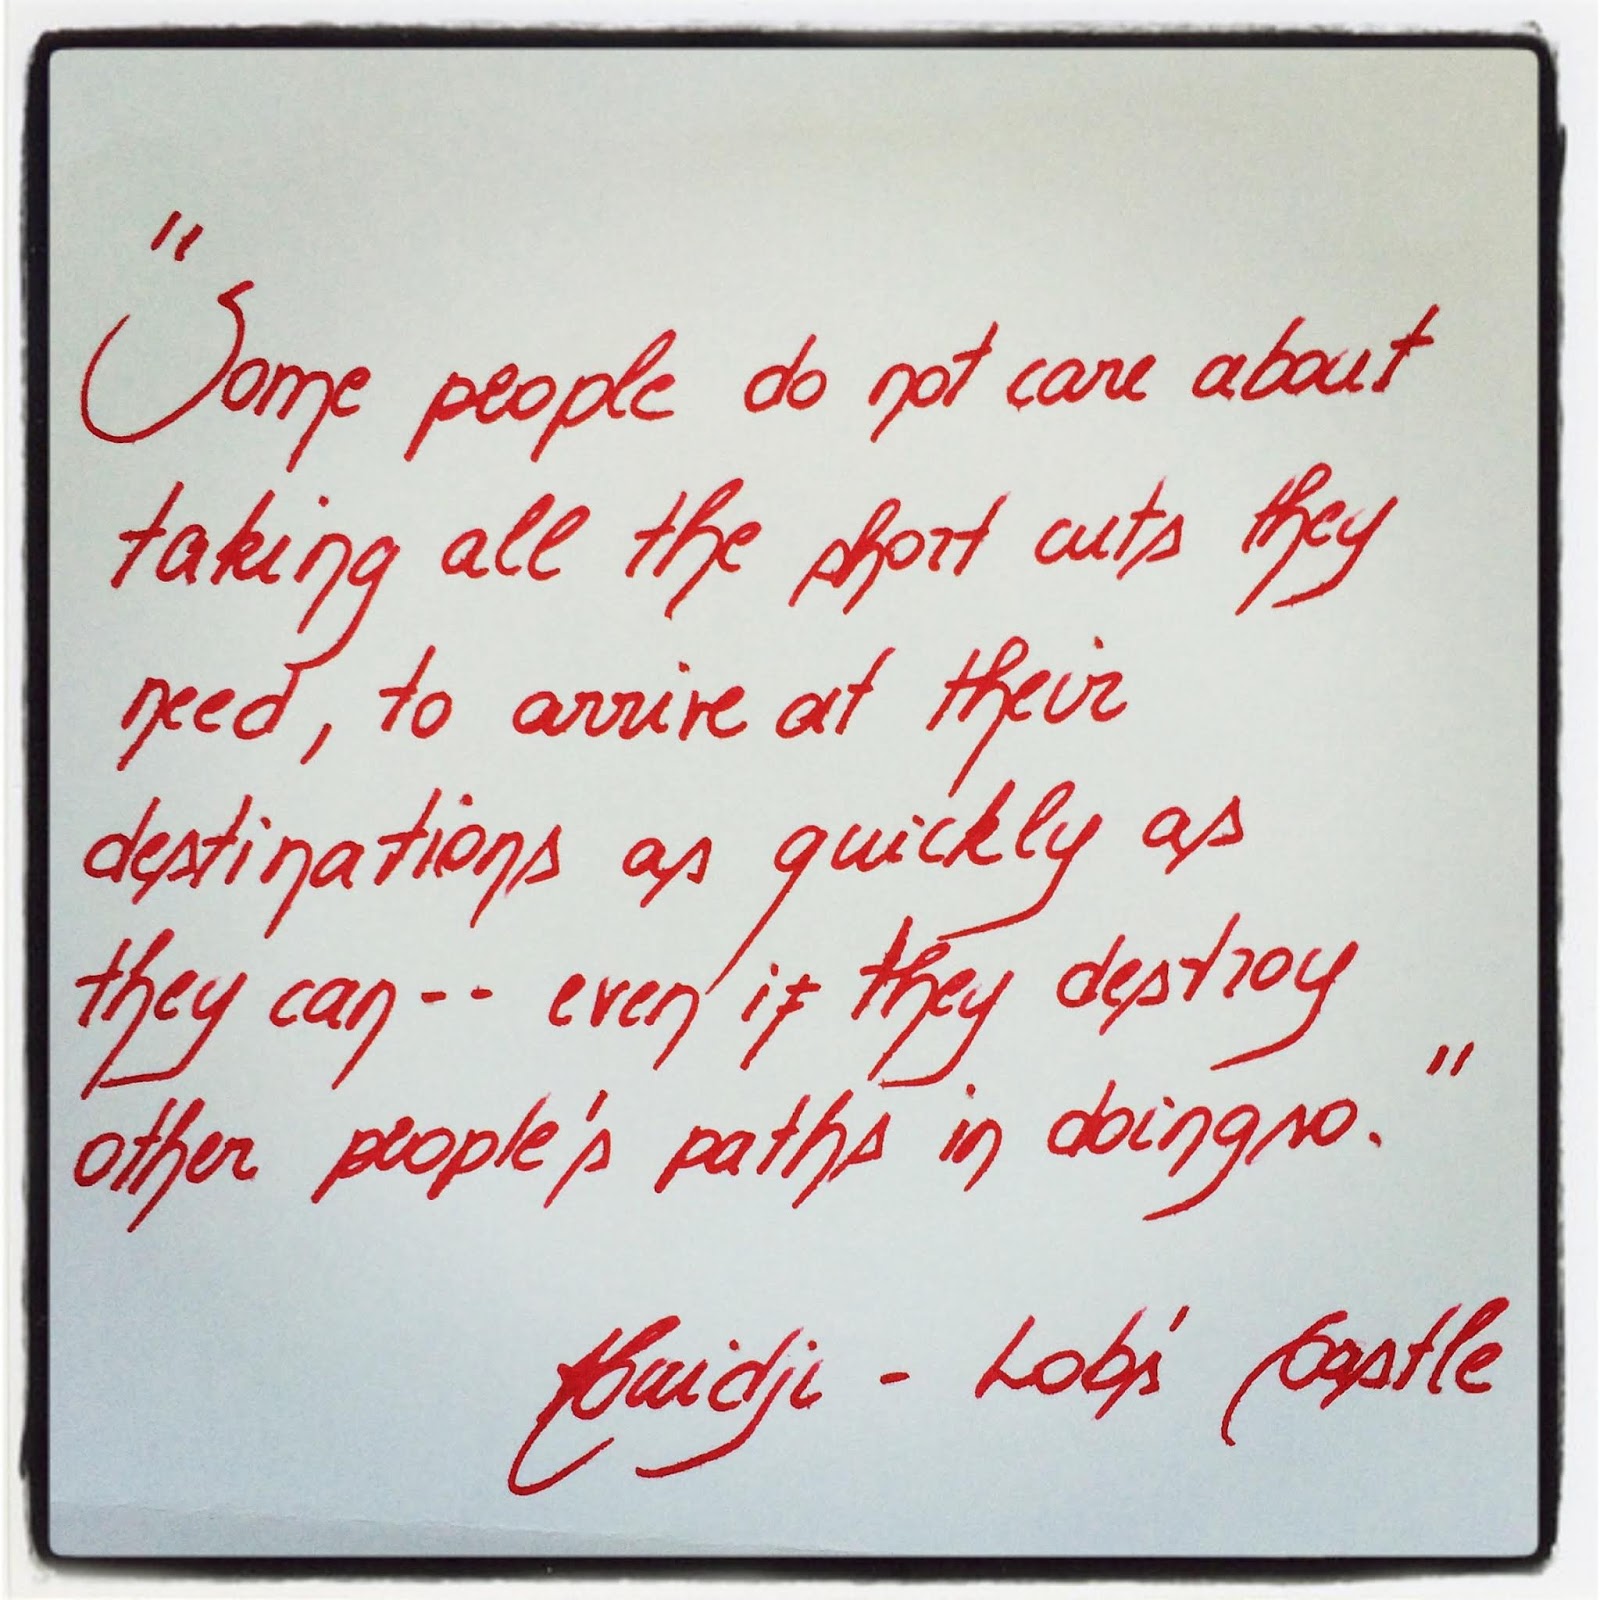 "Some people do not care about
taking all the short cuts they
need, to arrive at their
destinations as quickly as
they can -- even if they destroy
other people's paths in doing so."
- Lobs' Castle